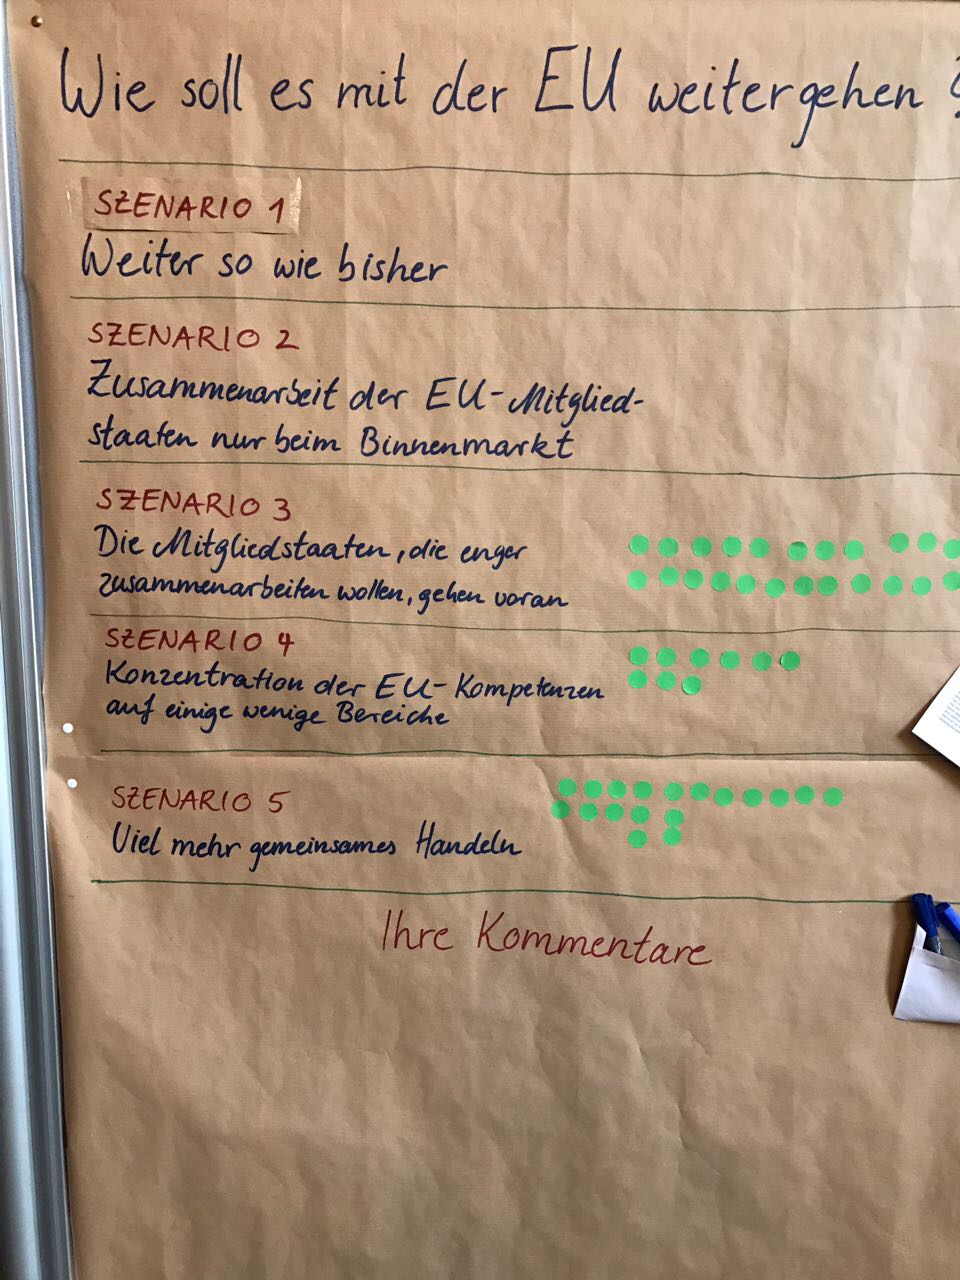 Wie soll es mit der EU weitergehen ?
SZENARIO 1
Weiter so wie bisher
SZENARIO 2
Zusammenarbeit der EU-Mitglied-
staaten nur beim Binnenmarkt
SZENARIO 3
Die Mitgliedstaaten, die enger
zusammenarbeiten wollen, gehen voran
SZENARIO 4
Konzentration der EU-Kompetenzen
auf einige wenige Bereiche
SZENARIO 5
Viel mehr gemeinsames Handeln
Ihre Kommentare